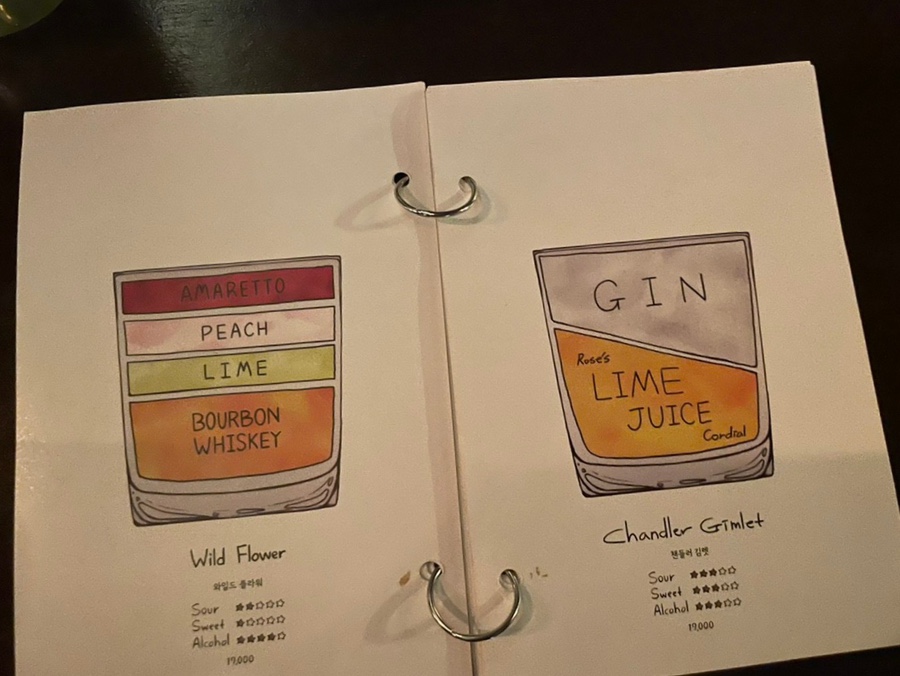 AMARETTO
PEACH
LIME
BOURBON
WHISKEY
Wild Flower
와일드 플라워
Sour ★★☆☆☆
Sweet ★☆☆☆☆
Alcohol ★★★★☆
19,000
GIN
Rose's
LIME
JUICE
Cordial
Chandler Gimlet
챈들러 김렛
Sour ★★★☆☆
Sweet ★★★☆☆
Alcohol ★★★☆☆
19,000